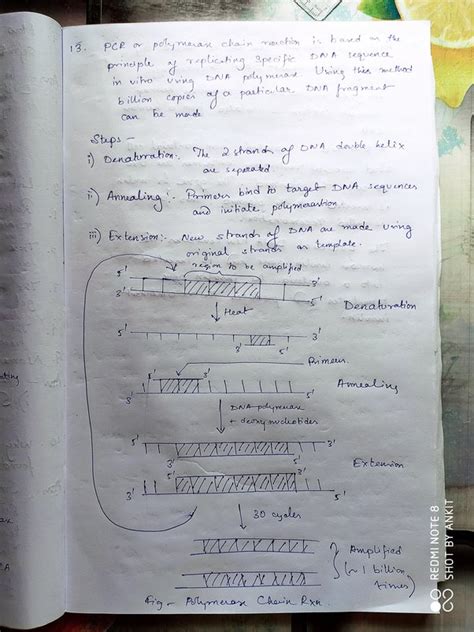 13. PCR or polymerase chain reaction is based on the
principle of replicating specific DNA sequence
in vitro using DNA polymerase Using this method
billion copies of a particular DNA fragment
can be made
Steps -
i) Denaturation:. The 2 strands of DNA double helix
are separated
ii) Annealing:. Primers bind to target DNA sequences
and initiate
iii) Extension:. New strands of DNA are made using
original strands as template.
region to be amplified
5' 3'
3' 5'
Denaturation
Heat
5' 3' 5' 3'
Primers
5' 3'
3' 5'
Annealing
DNA polymerase
+ deoxy nucleotides
5' 3'
3' 5'
Extension
5' 3'
3' 5'
30 cycles
Amplified
(~ 1 billion
times)
Fig - Polymerase Chain Rxn
REDMI NOTE 8
SHOT BY ANKIT